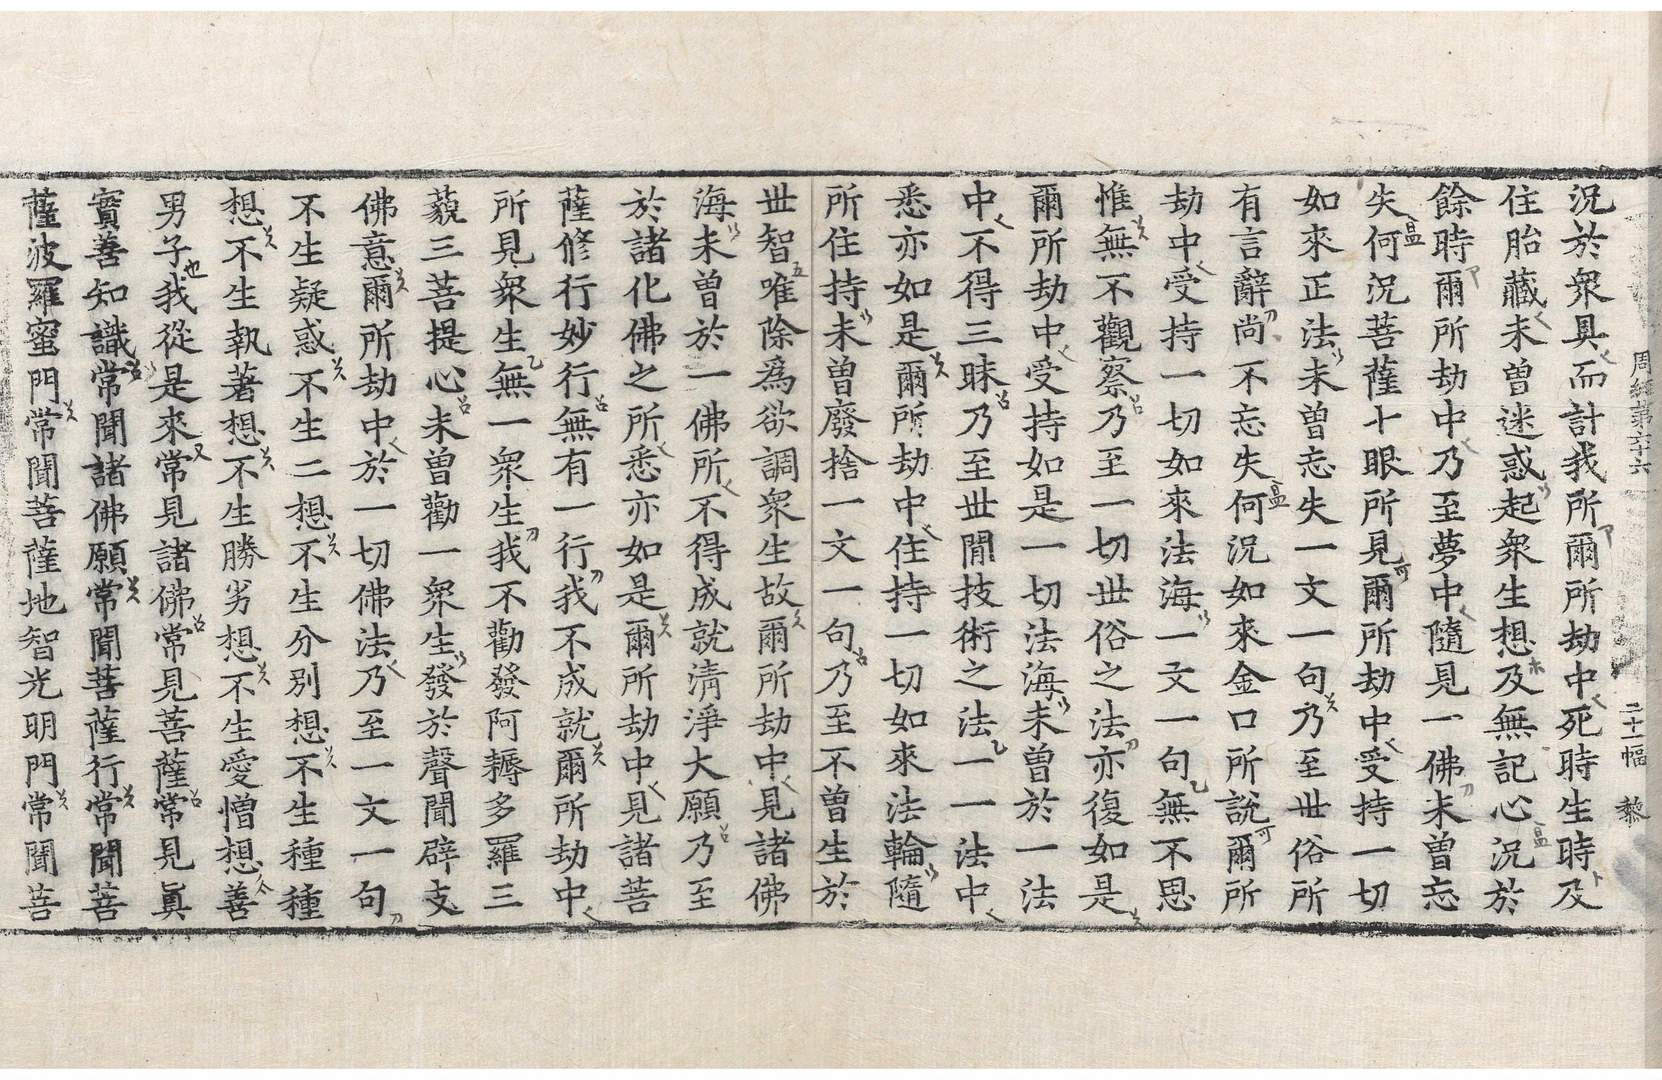 周經第六十六　二十一幅　黎
況於衆具而計我所爾所劫中死時生時及
住胎藏未曾迷惑起衆生想及無記心況於
餘時爾所劫中乃至夢中隨見一佛未曾忘
失何況菩薩十眼所見爾所劫中受持一切
如來正法未曾忘失一文一句乃至世俗所
有言辭尚不忘失何況如來金口所說爾所
劫中受持一切如來法海一文一句無不思
惟無不觀察乃至一切世俗之法亦復如是
爾所劫中受持如是一切法海未曾於一法
中不得三昧乃至世閒技術之法一一法中
悉亦如是爾所劫中住持一切如來法輪隨
所住持未曾廢捨一文一句乃至不曾生於
世智唯除為欲調衆生故爾所劫中見諸佛
海未曾於一佛所不得成就清淨大願乃至
於諸化佛之所悉亦如是爾所劫中見諸菩
薩修行妙行無有一行我不成就爾所劫中
所見衆生無一衆生我不勸發阿耨多羅三
藐三菩提心未曾勸一衆生發於聲聞辟支
佛意爾所劫中於一切佛法乃至一文一句
不生疑惑不生二想不生分別想不生種種
想不生執著想不生勝劣想不生愛憎想善
男子我從是來常見諸佛常見菩薩常見眞
實善知識常聞諸佛願常聞菩薩行常聞菩
薩波羅蜜門常聞菩薩地智光明門常聞菩